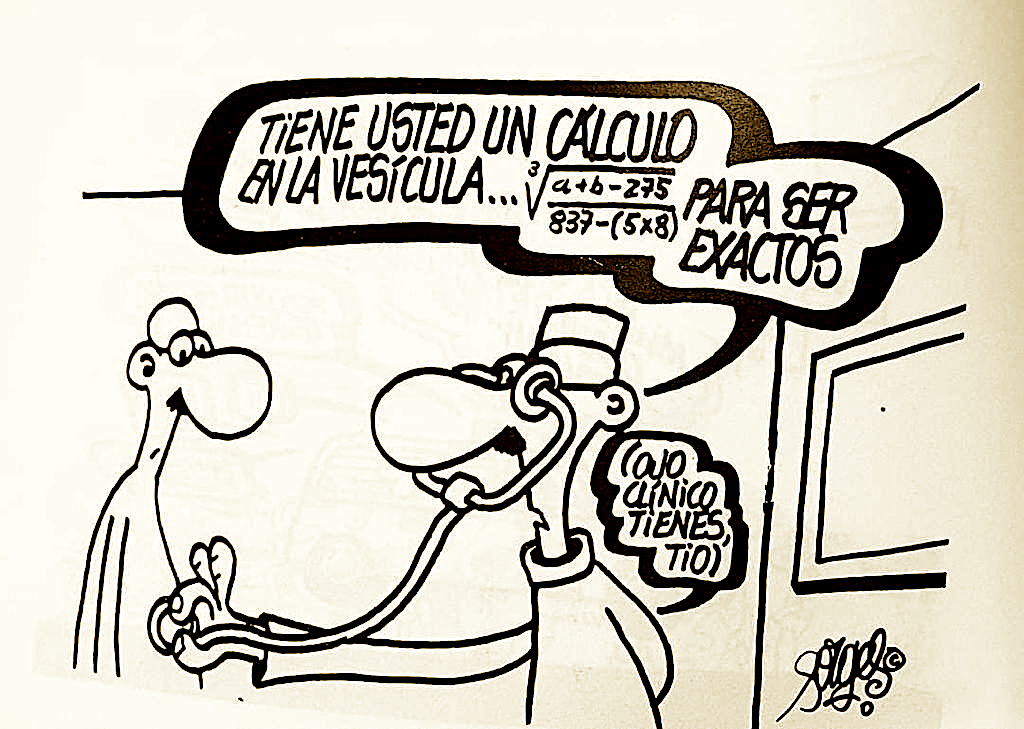 TIENE USTED UN CÁLCULO
EN LA VESÍCULA... ∛((a+b-275)/(837-(5x8))) PARA SER
EXACTOS
(OJO
CLÍNICO
TIENES,
TIO)
Forges ©